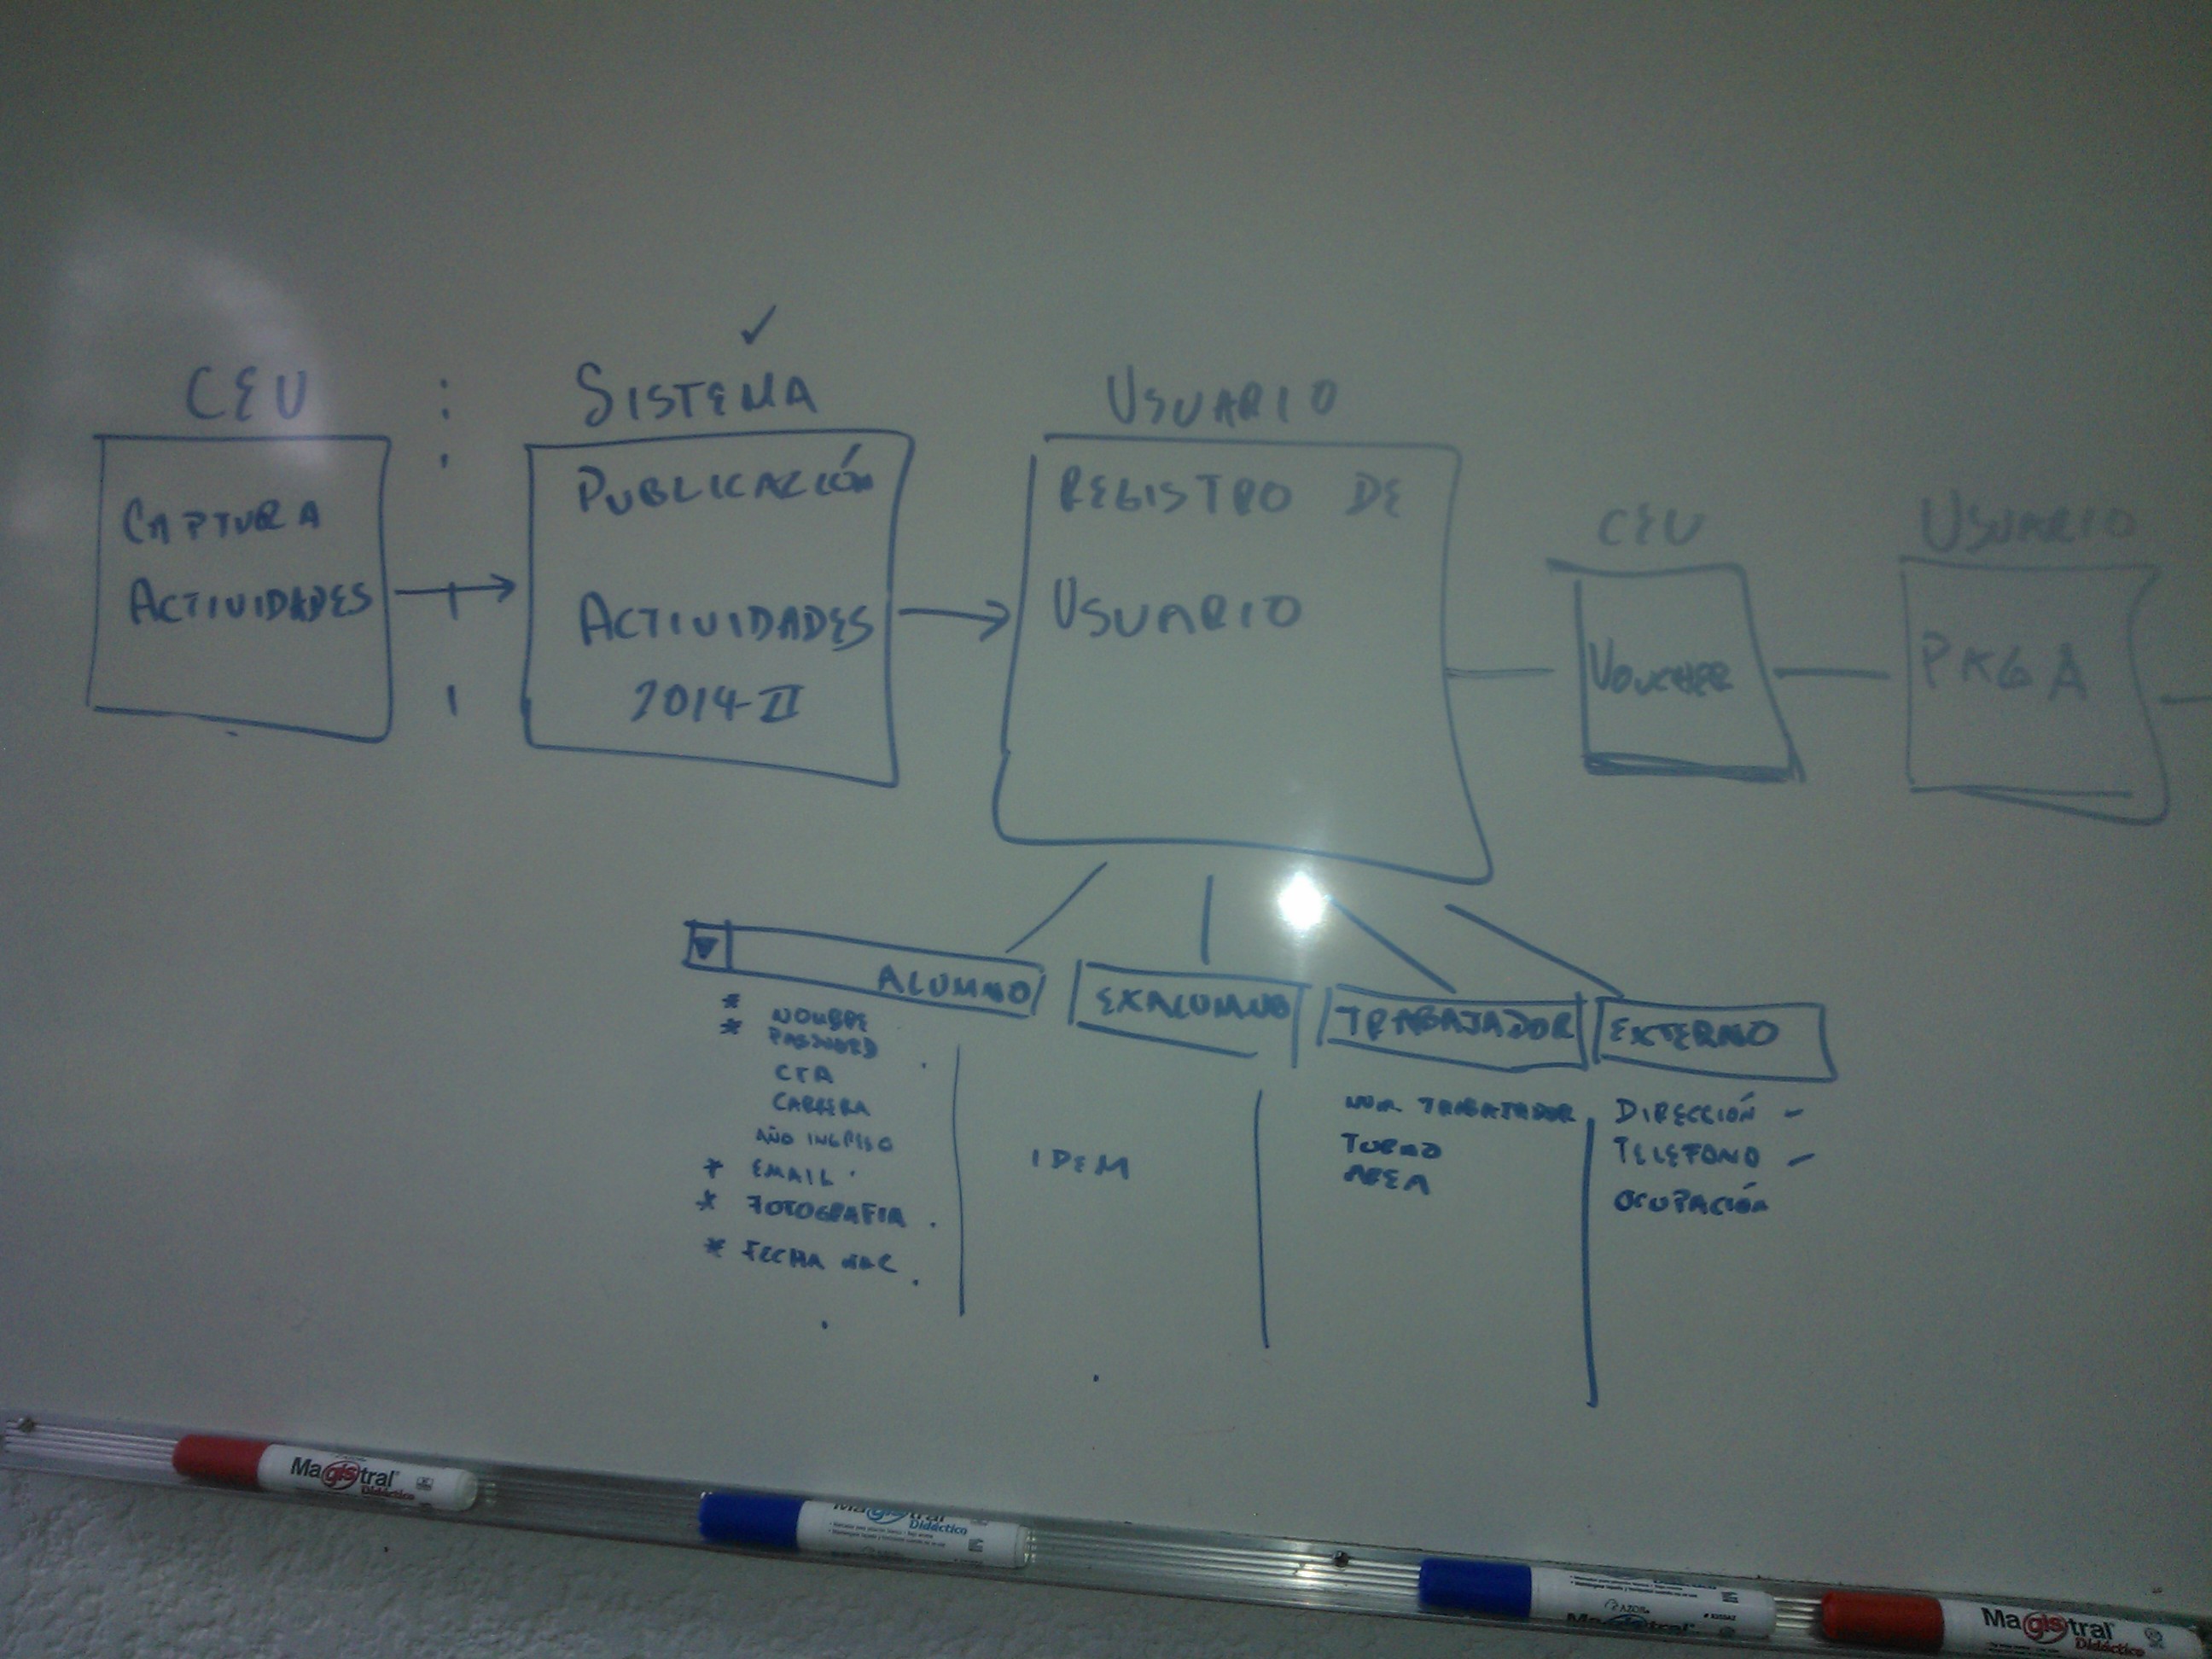 ✓
CEU
CAPTURA
ACTIVIDADES
SISTEMA
PUBLICACIÓN
ACTIVIDADES
2014-II
USUARIO
REGISTRO DE
USUARIO
CEU
VOUCHER
USUARIO
PAGA
ALUMNO
* NOMBRE
* PASSWORD
CTA
CARRERA
AÑO INGRESO
* EMAIL
* FOTOGRAFIA
* FECHA NAC
EXALUMNO
IDEM
TRABAJADOR
NUM TRABAJADOR
TURNO
AREA
EXTERNO
DIRECCIÓN -
TELEFONO -
OCUPACIÓN
Magistral
Didáctico
Magistral
Didáctico
AZOR
Magistral
Magistral
Didáctico